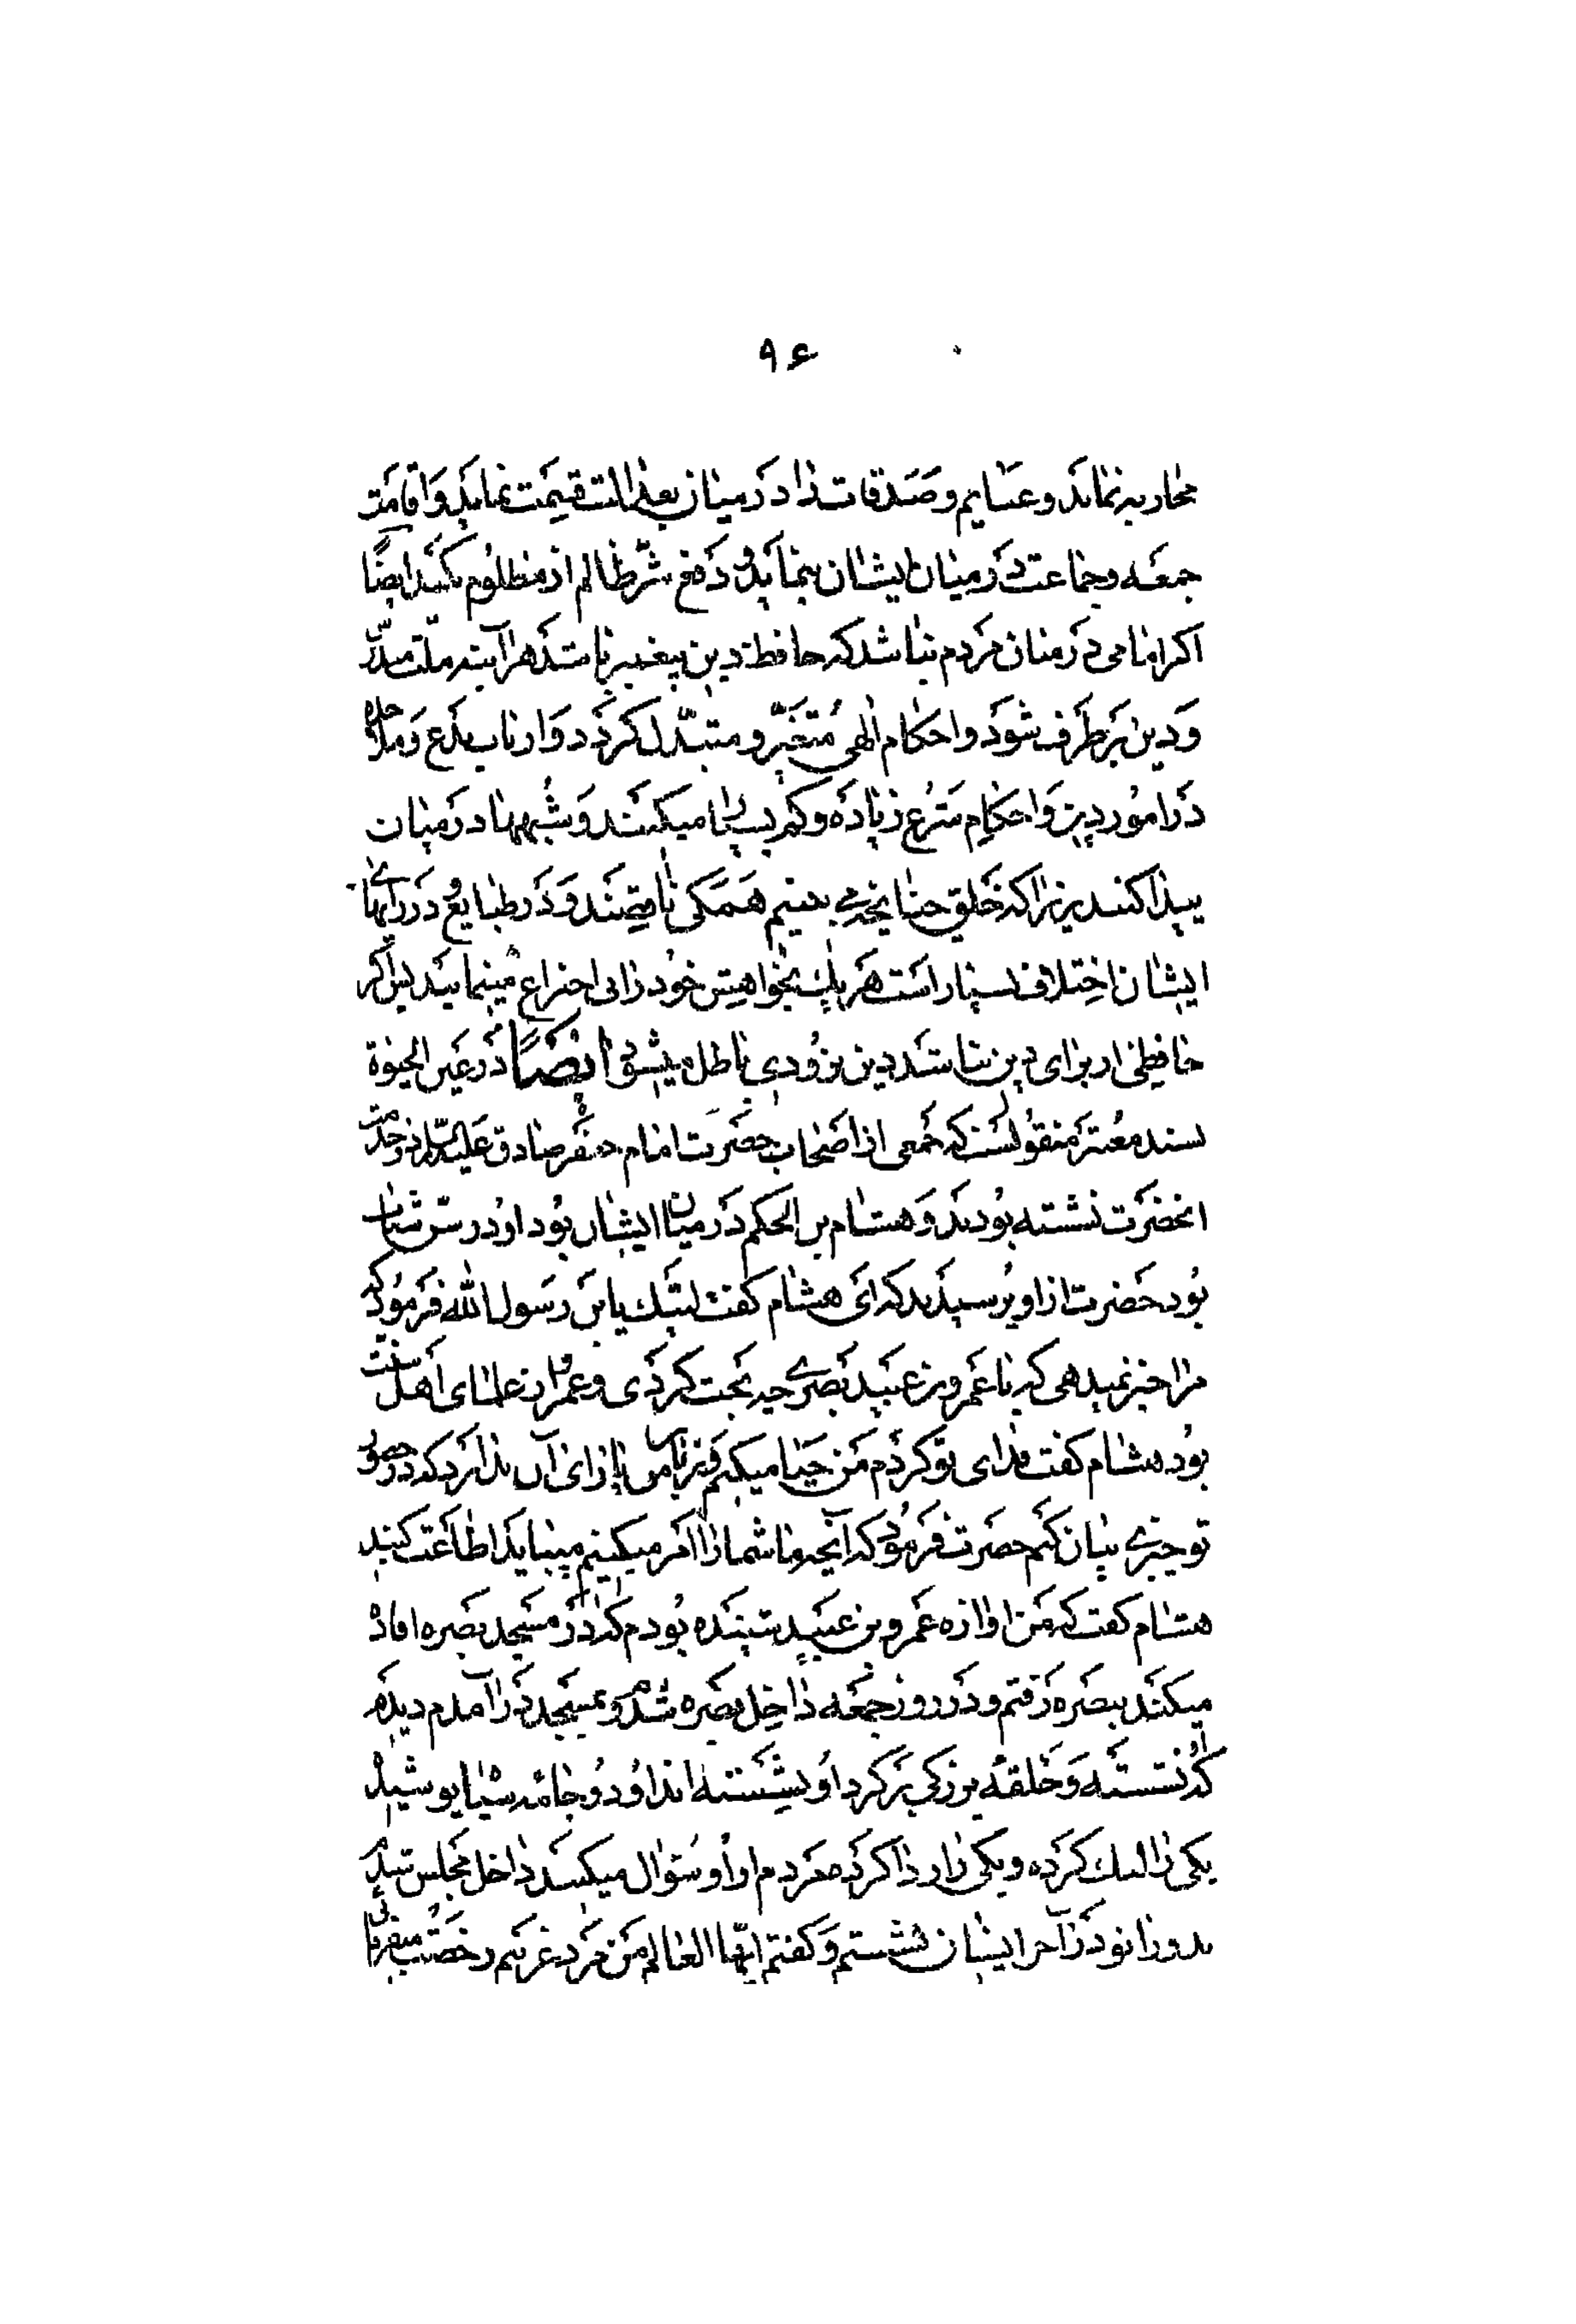 ۹۶
محاربه نماید و غنایم و صدقات را در میان بعدالت قسمت نماید و اقامت
جمعه و جماعت در میان ایشان بنماید و دفع شر ظالم از مظلوم بکند ایضًا
اکر امامی در میان مردم نباشد که حافظ دین پیغمبر باشد هر آینه ملت
و دین بر طرف شود و احکام الهی متغیّر و متبدّل کردد و ارباب بدع و ملاحده
در امور دین و احکام شرع زیاده و کم بسیار میکنند و شبهها در میان
پیدا کنند زیرا که خلق چنانچه می بینیم همکی ناقصند و در طبایع و در رایهای
ایشان اختلاف بسیار است هر یک بخواهش خود رائی اختراع مینمایند پس اکر
حافظی از برای دین نباشد دین بزودی باطل میشود ایضًا در عین الحیوة
بسند معتبر منقولست که جمعی از اصحاب حضرت امام جعفر صادق علیه السلام در خدمت
انحضرت نشسته بودند و هشام بن الحکم در میان ایشان بود و او در سن شباب
بود حضرت از او پرسیدند که ای هشام کفت لبّیک یابن رسول الله فرمود که
مرا خبر نمیدهی که با عمرو بن عبید بصری چه بحث کردی و عمرو از علمای اهل سنت
بود هشام کفت فدای تو کردم من حیا میکنم و زبان من یارای آن ندارد که در حضور
تو چیزی بیان کنم حضرت فرمود که آنچه ما شما را امر میکنیم میباید اطاعت کنید
هشام کفت که من اوازه عمرو بن عبید شنیده بودم که در مسجد بصره افاده
میکند ببصره رفتم و در روز جمعه داخل بصره شدم و بمسجد در آمدم دیدم
که او نشسته و حلقه بزرکی بر کرد او نشسته اند او دو جامه سیاه پوشیده
یکی را لنک کرده و یکی را ردا کرده مردم از او سؤال میکنند داخل مجلس شدم
بدو زانو در آخر ایشان نشستم و کفتم ایّها العالم من مرد غریبم رخصت میفرمائی